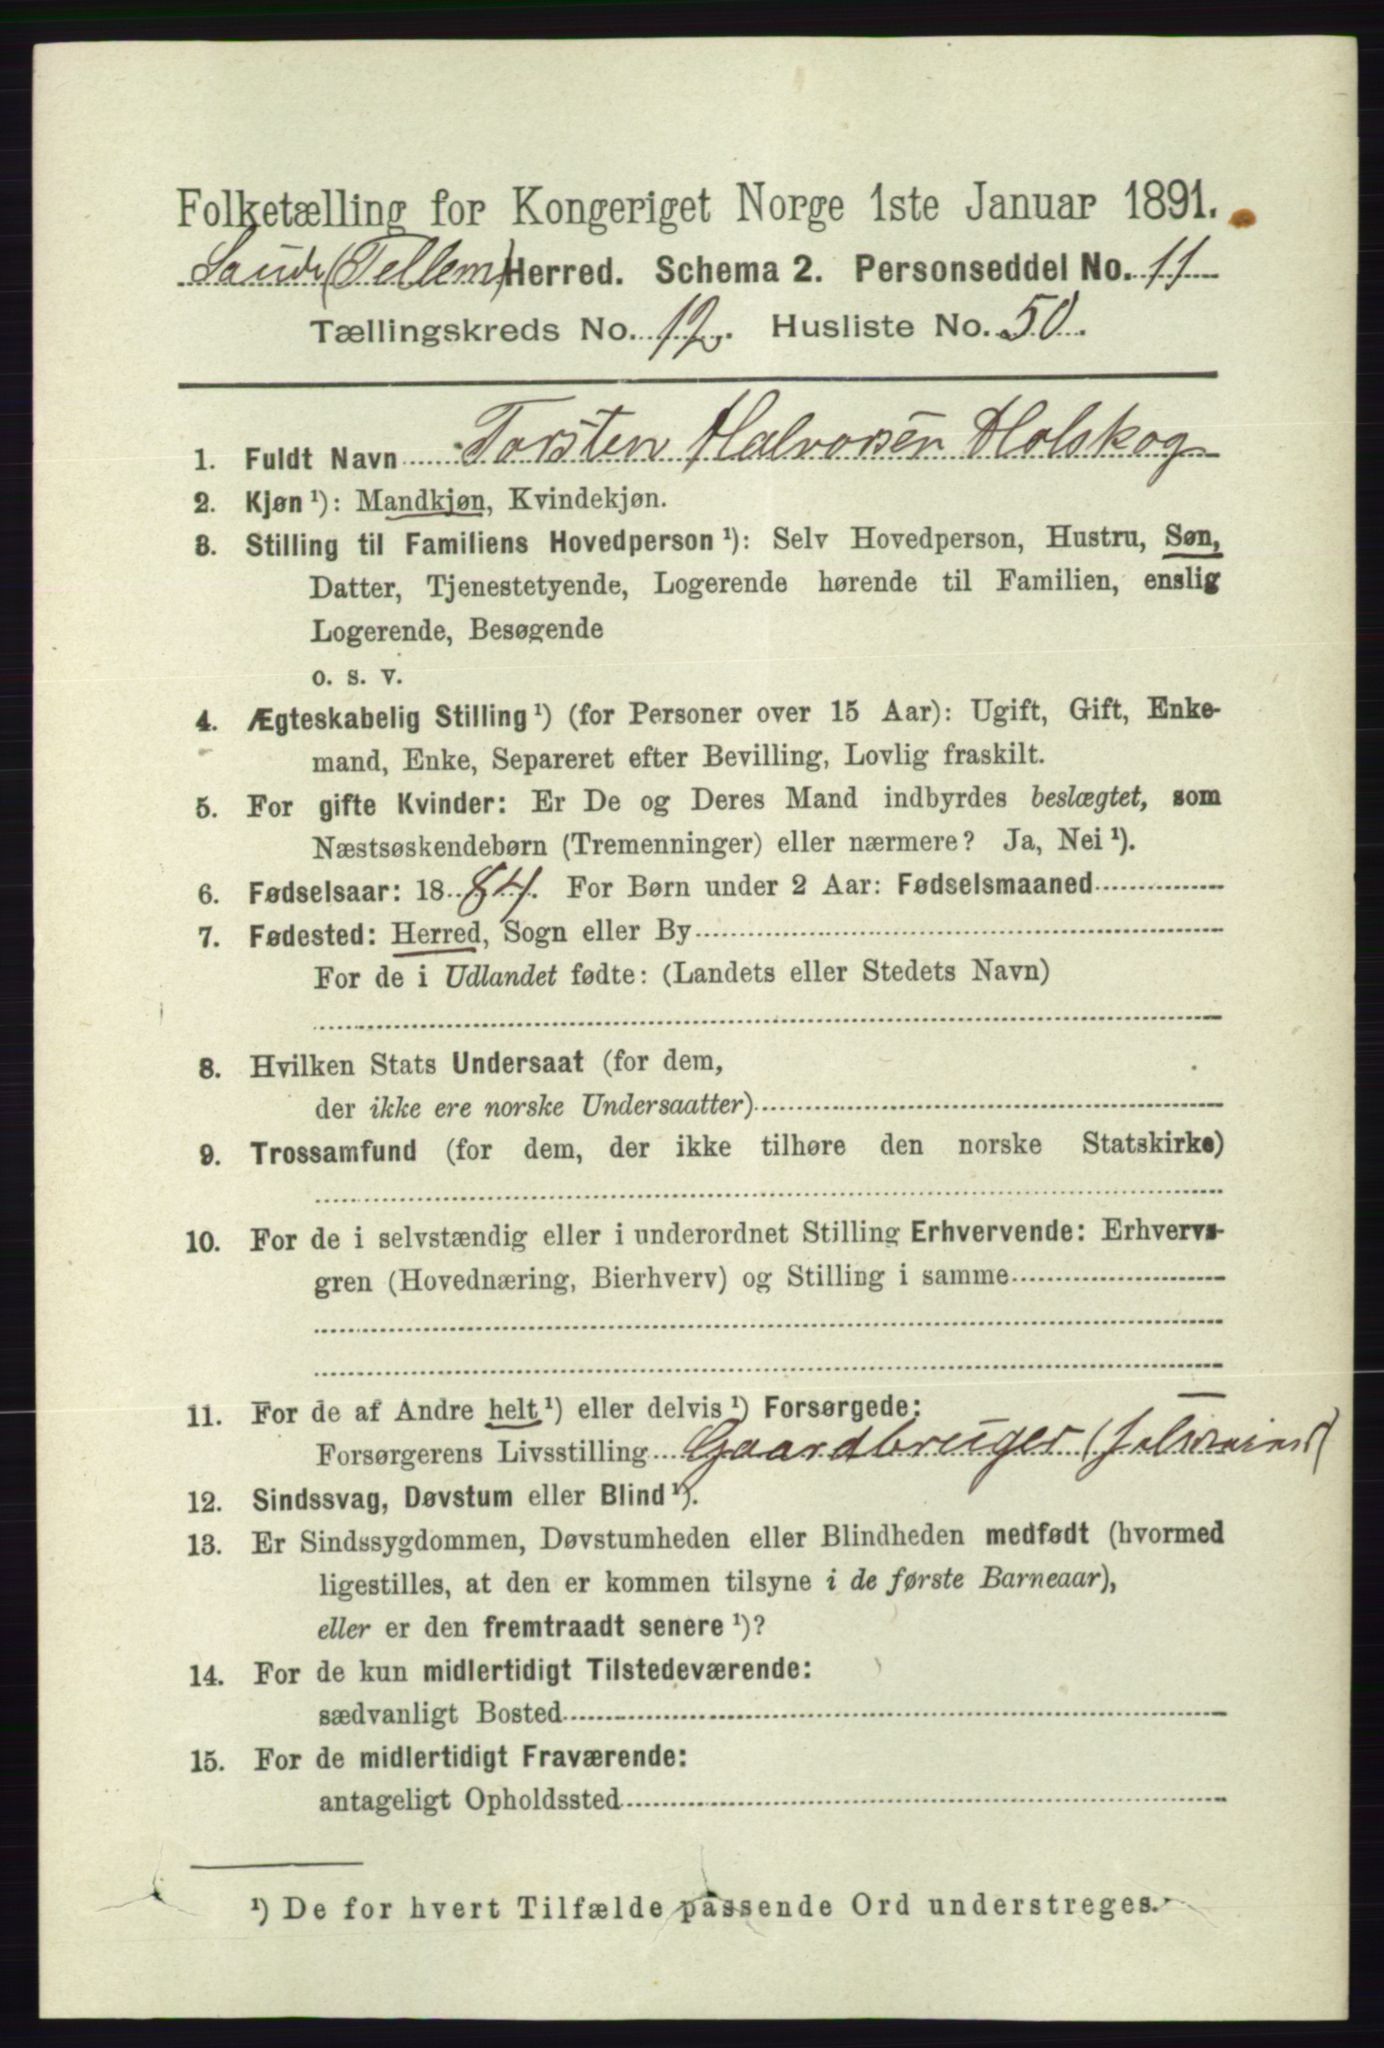 Folketælling for Kongeriget Norge 1ste Januar 1891.
Saude (Tellem) Herred. Schema 2. Personseddel No. 11
Tællingskreds No. 12. Husliste No. 50.
1. Fuldt Navn Torsten Halvorsen Holskog
2. Kjøn ¹): Mandkjøn, Kvindekjøn.
3. Stilling til Familiens Hovedperson ¹): Selv Hovedperson, Hustru, Søn,
Datter, Tjenestetyende, Logerende hørende til Familien, enslig
Logerende, Besøgende
o. s. v.
4. Ægteskabelig Stilling ¹) (for Personer over 15 Aar): Ugift, Gift, Enke-
mand, Enke, Separeret efter Bevilling, Lovlig fraskilt.
5. For gifte Kvinder: Er De og Deres Mand indbyrdes beslægtet, som
Næstsøskendebørn (Tremenninger) eller nærmere? Ja, Nei ¹).
6. Fødselsaar: 1884. For Børn under 2 Aar: Fødselsmaaned
7. Fødested: Herred, Sogn eller By
For de i Udlandet fødte: (Landets eller Stedets Navn)
8. Hvilken Stats Undersaat (for dem,
der ikke ere norske Undersaatter)
9. Trossamfund (for dem, der ikke tilhøre den norske Statskirke)
10. For de i selvstændig eller i underordnet Stilling Erhvervende: Erhvervs-
gren (Hovednæring, Bierhverv) og Stilling i samme
11. For de af Andre helt ¹) eller delvis ¹) Forsørgede:
Forsørgerens Livsstilling Gaardbruger
12. Sindssvag, Døvstum eller Blind ¹).
13. Er Sindssygdommen, Døvstumheden eller Blindheden medfødt (hvormed
ligestilles, at den er kommen tilsyne i de første Barneaar),
eller er den fremtraadt senere ¹)?
14. For de kun midlertidigt Tilstedeværende:
sædvanligt Bosted
15. For de midlertidigt Fraværende:
antageligt Opholdssted
¹) De for hvert Tilfælde passende Ord understreges.